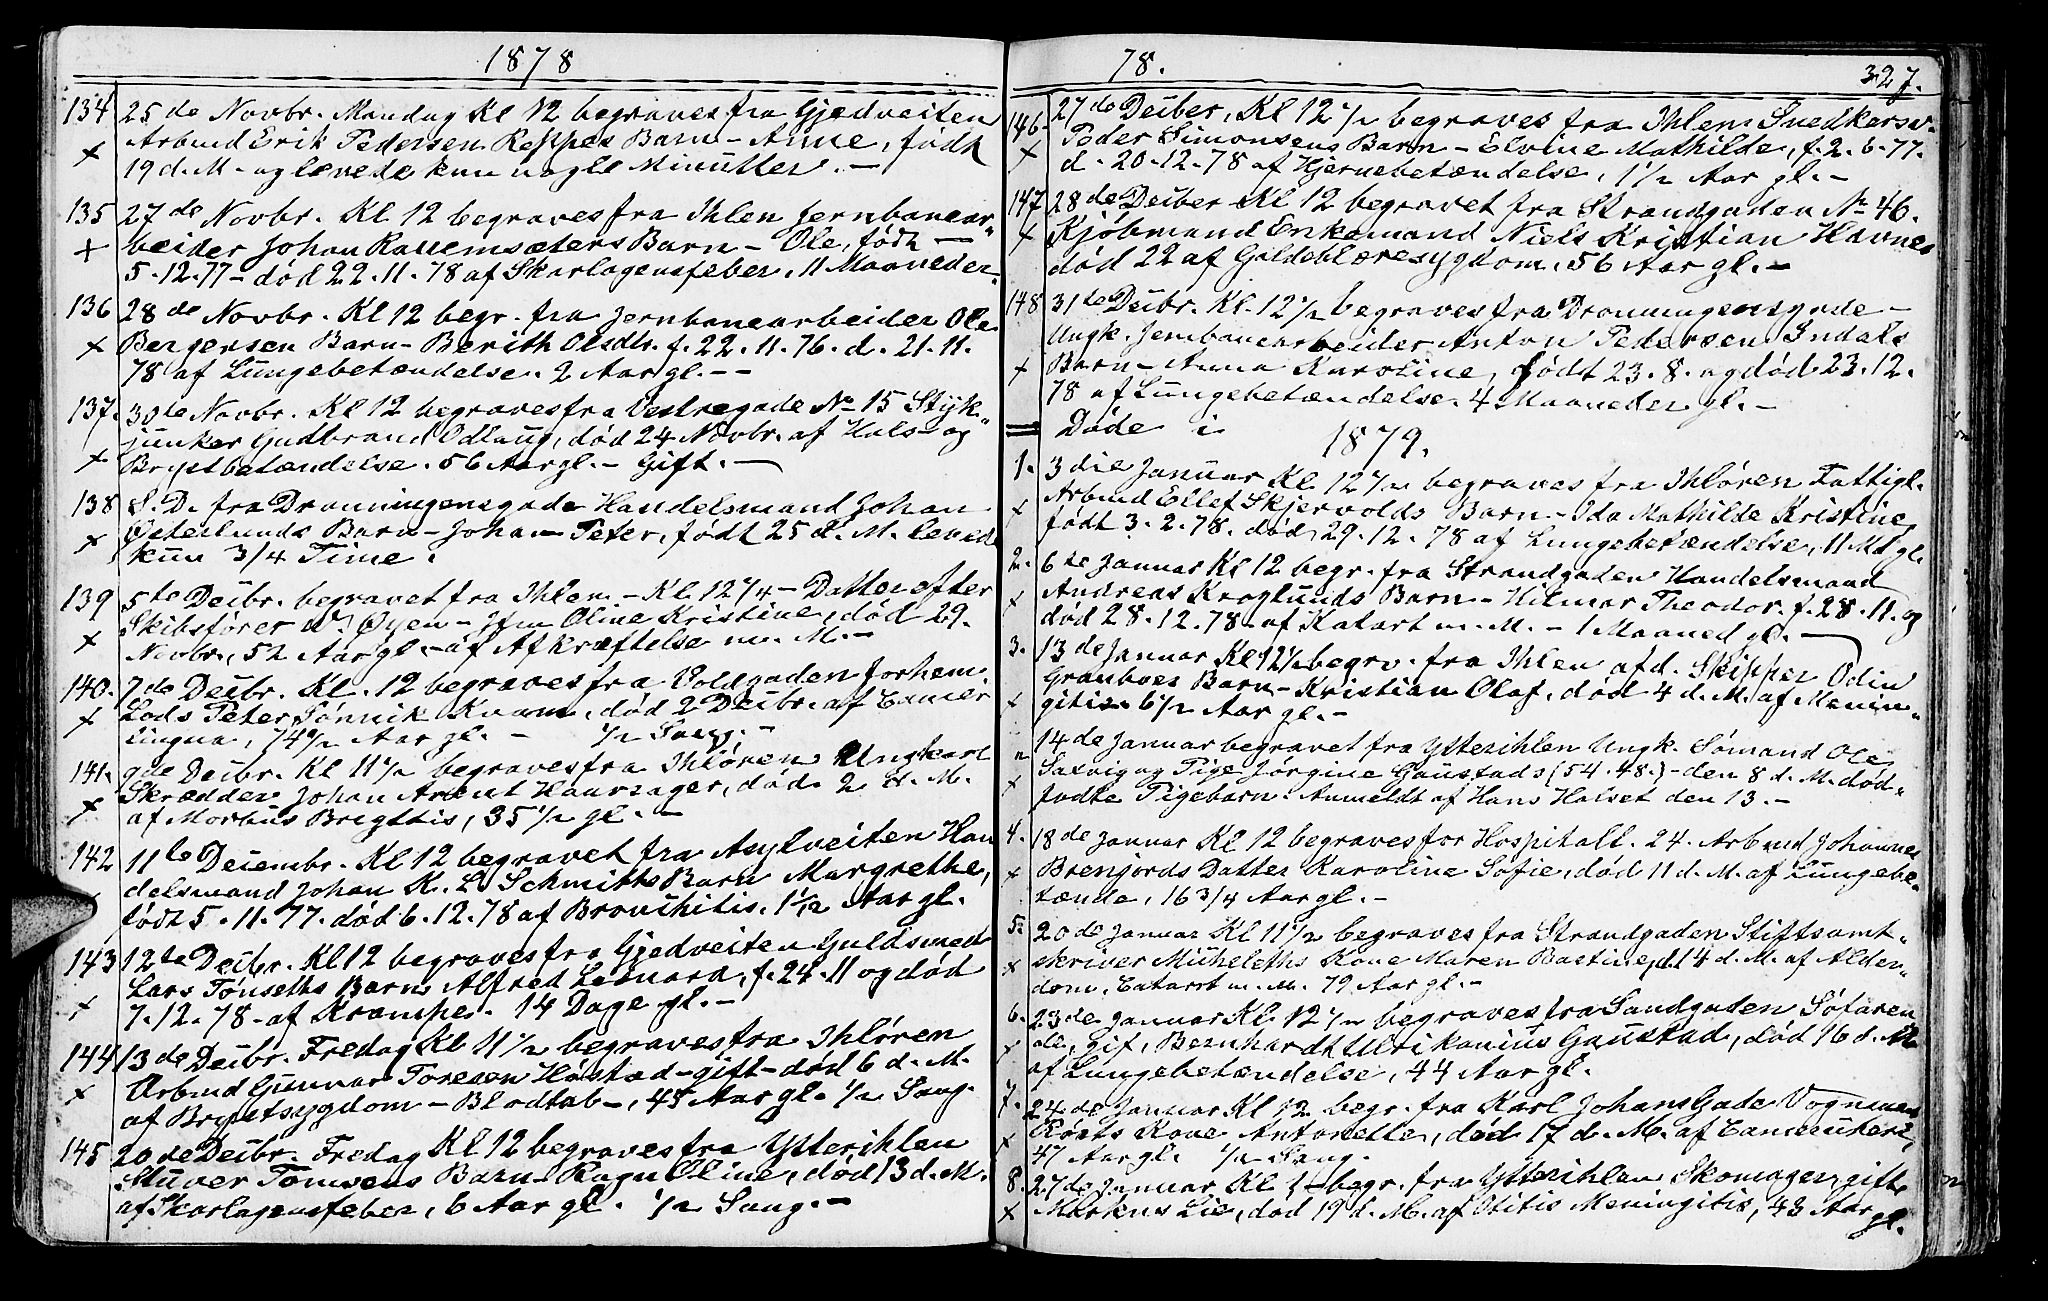 1878
134 25de Novbr. Mandag Kl 12 begraves fra Gjedveiten
Arbmd Erik Pedersen Reppes Barn - Anne, født
x 19 d. M. og levede kun nogle Minutter. -
135 27de Novbr. Kl 12 begraves fra Ihlen Jernbanear"
x beider Johan Ravemsæters Barn - Ole, født -
5.12.77 - død 22.11.78 af Skarlagensfeber. 11 Maaneder
136 28de Novbr. Kl 12 begr. fra Jernbanearbeider Ole
x Bergersen Barn - Berith Olsdtr. f. 22.11.76. d. 21.11.
78 af Lungebetændelse. 2 Aar gl. - -
137. 30te Novbr. Kl 12 begraves fra Vestregade No 15 Styk"
junker Gudbrand Odlaug, død 24 Novbr. af Hals- og"
x Brystbetændelse. 56 Aar gl. - Gift. -
138 S. D. fra Dronningensgade Handelsmand Johan
Østerlunds Barn - Johan Peter, født 25 d. M. levede
x kun 3/4 Time.
139 5te Deibr. begravet fra Ihlen - Kl 12 1/4 - Datter efter
Skibsfører Øyen - Jfru Oline Kristine, død 29.
x Novbr., 52 Aar gl. - af Afkræftelse m. M. -
140. 7de Deibr. Kl. 12 begraves fra Voldgaden forhen.
x Lods Peter Sønnik Kvam, død 2 Deibr. af Cancer
Lingua, 74 1/2 Aar gl. - 1/2 Sang. -
141. 9de Deibr. Kl 11 1/2 begraves fra Ihløren Ungkarl
Skrædder Johan Arent Haarsager, død 2 d. M.
x af Morbus Brigttis, 35 1/2 gl. -
142 11te Deiembr. Kl 12 begravet fra Asylveiten Han
delsmand Johan K. L. Schmitts Barn Margrethe,
x født 5.11.77. død 6.12.78 af Bronchitis. 1 1/12 Aar gl.
143 12te Deibr. Kl 12 begraves fra Gjedveiten Guldsmed
Lars Tønseths Barn Alfred Leonard, f. 24.11 og død
x 7.12.78 - af Krampe. 14 Dage gl. -
144 13de Deibr. Fredag Kl 11 1/2 begraves fra Ihløren
x Arbmd Gunnar Toresen Høstad - gift - død 6 d. M.
af Brystsygdom - Blodtab -, 45 Aar gl. 1/2 Sang.
145 20de Deibr. Fredag Kl 12 begraves fra Ytterihlen
Stuver Tomsens Barn - Ragn Oline, død 13 d. M.
x af Skarlagensfeber, 6 Aar gl. 1/2 Sang. -
78. 327.
146 27de Deiber, Kl 12 1/2 begraves fra Ihlen Snedkersv.
x Peder Simonsens Barn - Elvine Mathilde, f. 2.6.77.
d. 20.12.78 af Hjernebetændelse, 1 1/2 Aar gl. -
147 28de Deiber Kl 12 begravet fra Strandgaden No 46.
x Kjøbmand Enkemand Niels Kristian Havnes
død 22 af Galdeblæresygdom, 56 Aar gl. -
148 31te Deibr. Kl. 12 1/2 begraves fra Dronningensgade -
Ungk. Jernbanearbeider Anton Pedersen Indals
x Barn - Anna Karoline, født 23.8. og død 23.12.
78 af Lungebetændelse. 4 Maaneder gl. -
Døde i 1879.
1. 3die Januar Kl 12 1/2 begraves fra Ihløren Fattigl.
x Arbmd Ellef Skjervolds Barn - Ida Mathilde Kristine,
født 3.2.78. død 29.12.78 af Lungebetændelse, 11 Md gl.
2. 6te Januar Kl 12 begr. fra Strandgaden Handelsmand
x Andreas Kroglunds Barn - Hilmar Theodor. f. 28.11. og
død 28.12.78 - af Katarr m. M. - 1 Maaned gl. -
3. 13de Januar Kl 12 1/2 begrv. fra Ihlen afd. Skipper Odin
x Barn - Kristian Olaf, død 4 d. M. af Menin"
gitis. 6 1/2 Aar gl. -
n 14de Januar begravet fra Ytterihlen Ungk. Sømand Ole
x Salvig og Pige Jørgine Gaustads (54.48.) - den 8 d. M. død"
fødte Pigebarn. Anmeldt af Hans Halset den 13. -
4. 18de Januar Kl 12 begraves for Hospitalt. 24. Arbmd Johannes
x Brenjords Datter Karoline Sofie, død 11 d. M. af Lungebe"
tænde, 16 3/4 Aar gl. -
5. 20de Januar Kl 11 1/2 begraves fra Strandgaden Stiftsamt"
x skriver Micheleths Kone Maren Bastine, d. 14 d. M. af Alder"
dom, Catarr m. M. 79 Aar gl. -
6. 23de Januar Kl 12 1/2 begraves fra Sandgaden Søfaren
x de, gif, Bernhardt Ulrikanius Gaustad, død 16 d. M.
af Lungebetændelse, 44 Aar gl.
7. 24de Januar Kl 12 begr. fra Karl Johans Gade Vognmand
x Kone Antonette, død 17 d. M. af
47 Aar gl. 1/2 Sang.
8. 27de Januar Kl 1 - begr. fra Ytterihlen Skomager, gift
x Markus Lie, død 19 d. M. af Otitis Meningitis, 43 Aar
gl.